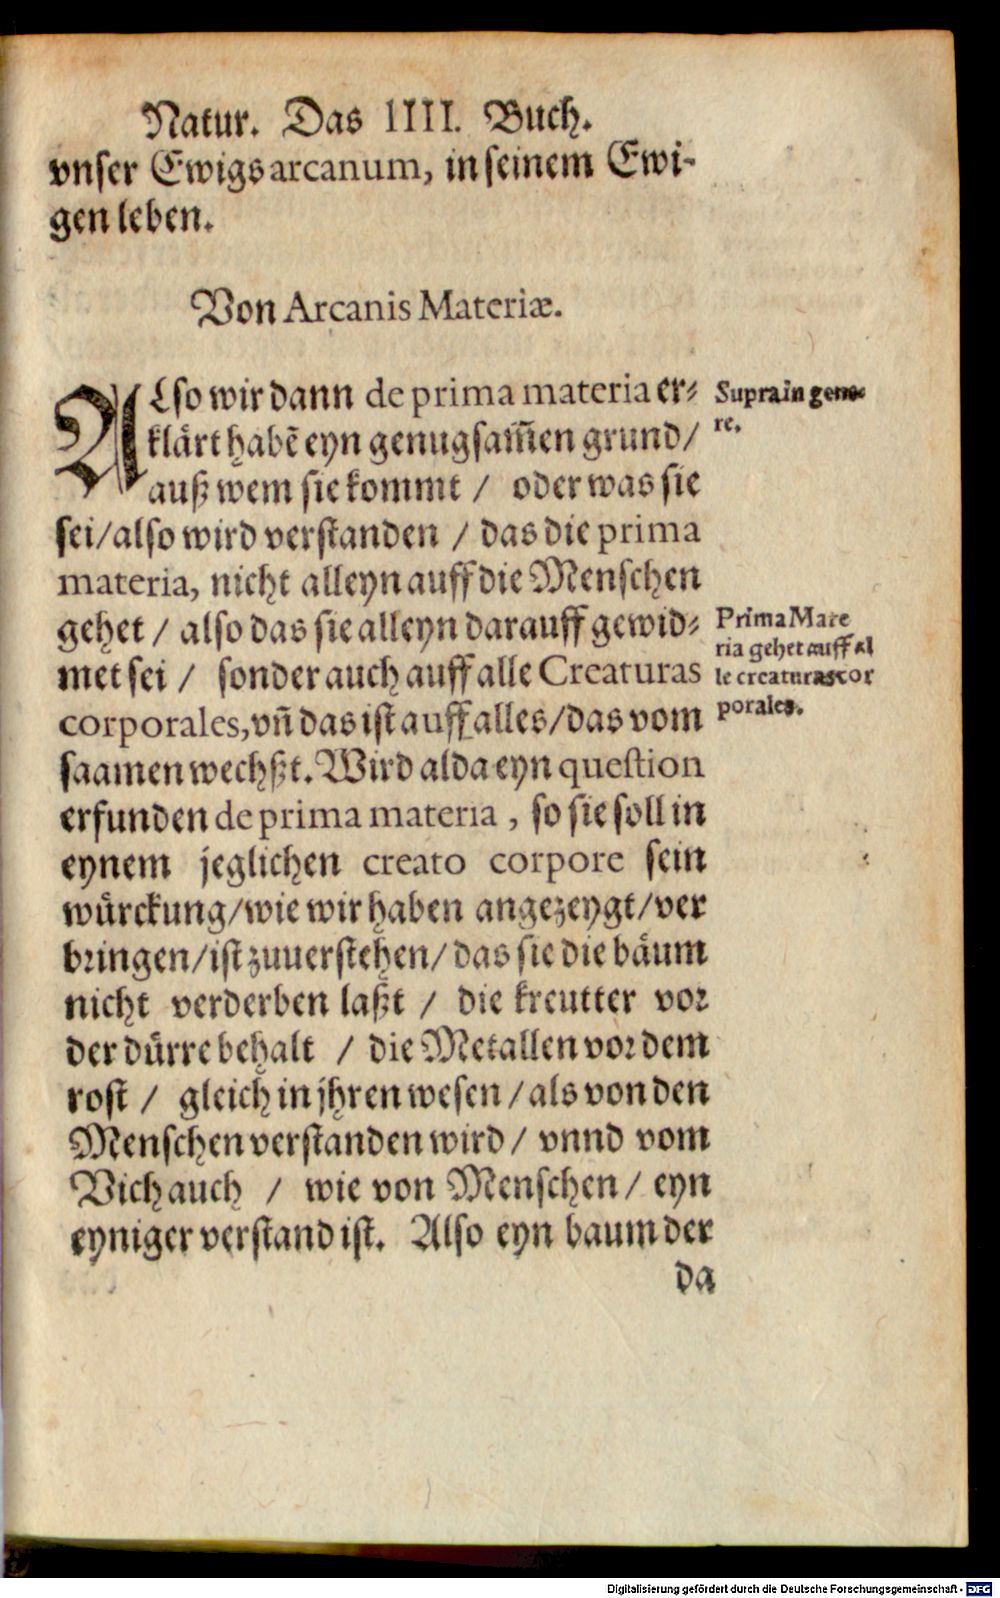 Natur. Das IIII. Buch.
vnser Ewigs arcanum, in seinem Ewi-
gen leben.
Von Arcanis Materiæ.
ALso wir dann de prima materia er⸗
klärt habẽ eyn genugsam̃en grund/
auß wem sie kommt / oder was sie
sei/also wird verstanden / das die prima
materia, nicht alleyn auff die Menschen
gehet / also das sie alleyn darauff gewid⸗
met sei / sonder auch auff alle Creaturas
corporales,vñ das ist auff alles/das vom
saamen wechßt. Wird alda eyn question
erfunden de prima materia , so sie soll in
eynem jeglichen creato corpore sein
würckung/wie wir haben angezeygt/ver
bringen/ist zuuerstehen/das sie die bäum
nicht verderben laßt / die kreutter vor
der dürre behalt / die Metallen vor dem
rost / gleich in jhren wesen/als von den
Menschen verstanden wird/ vnnd vom
Vich auch / wie von Menschen/ eyn
eyniger verstand ist. Also eyn baum der
da
Supra in gene-
re.
Prima Mate
ria gehet auff al
le creaturas cor
porales.
Digitalisierung gefördert durch die Deutsche Forschungsgemeinschaft - DFG